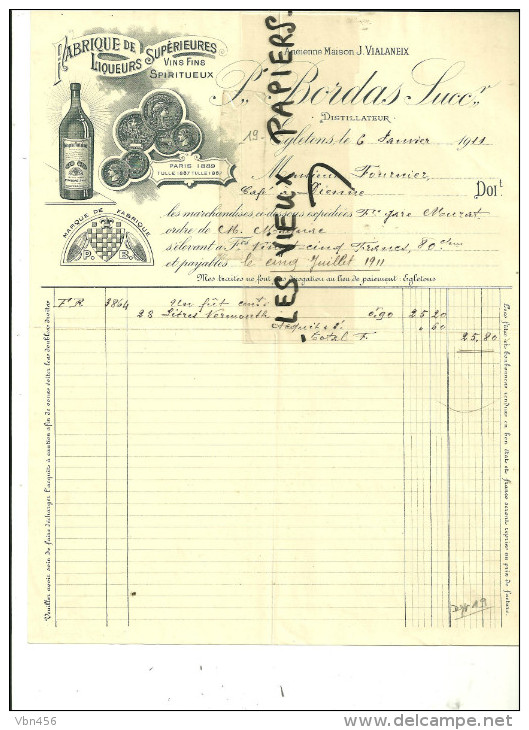 FABRIQUE DE
LIQUEURS SUPÉRIEURES
VINS FINS
SPIRITUEUX
Ancienne Maison J. VIALANEIX
P. Bordas Succr
DISTILLATEUR
19 - Egletons, le 6 Janvier 1911
PARIS 1889
TULLE 1887 TULLE 1887
Monsieur Fournier,
Café Vienne
Doit
MARQUE DE FABRIQUE
P. B.
les marchandises ci-dessous expédiées Fco gare Murat
ordre de M.
s'élevant à Frs Vingt cinq Francs, 80 cmes
et payables le cinq Juillet 1911
Mes traites ne font pas dérogation au lieu de paiement : Egletons
F. R. 3864 Un fût cont.
28 Litres Vermouth 0.90 25,20
Acquit , 60
Total F. 25,80
Veuillez avoir soin de faire décharger l'acquit à caution afin de vous éviter les doubles droits
Les fûts et bonbonnes rendus en bon état et franco seront repris au prix de facture.
LES VIEUX PAPIERS.
dép 19
Vbn456
delcampe.net